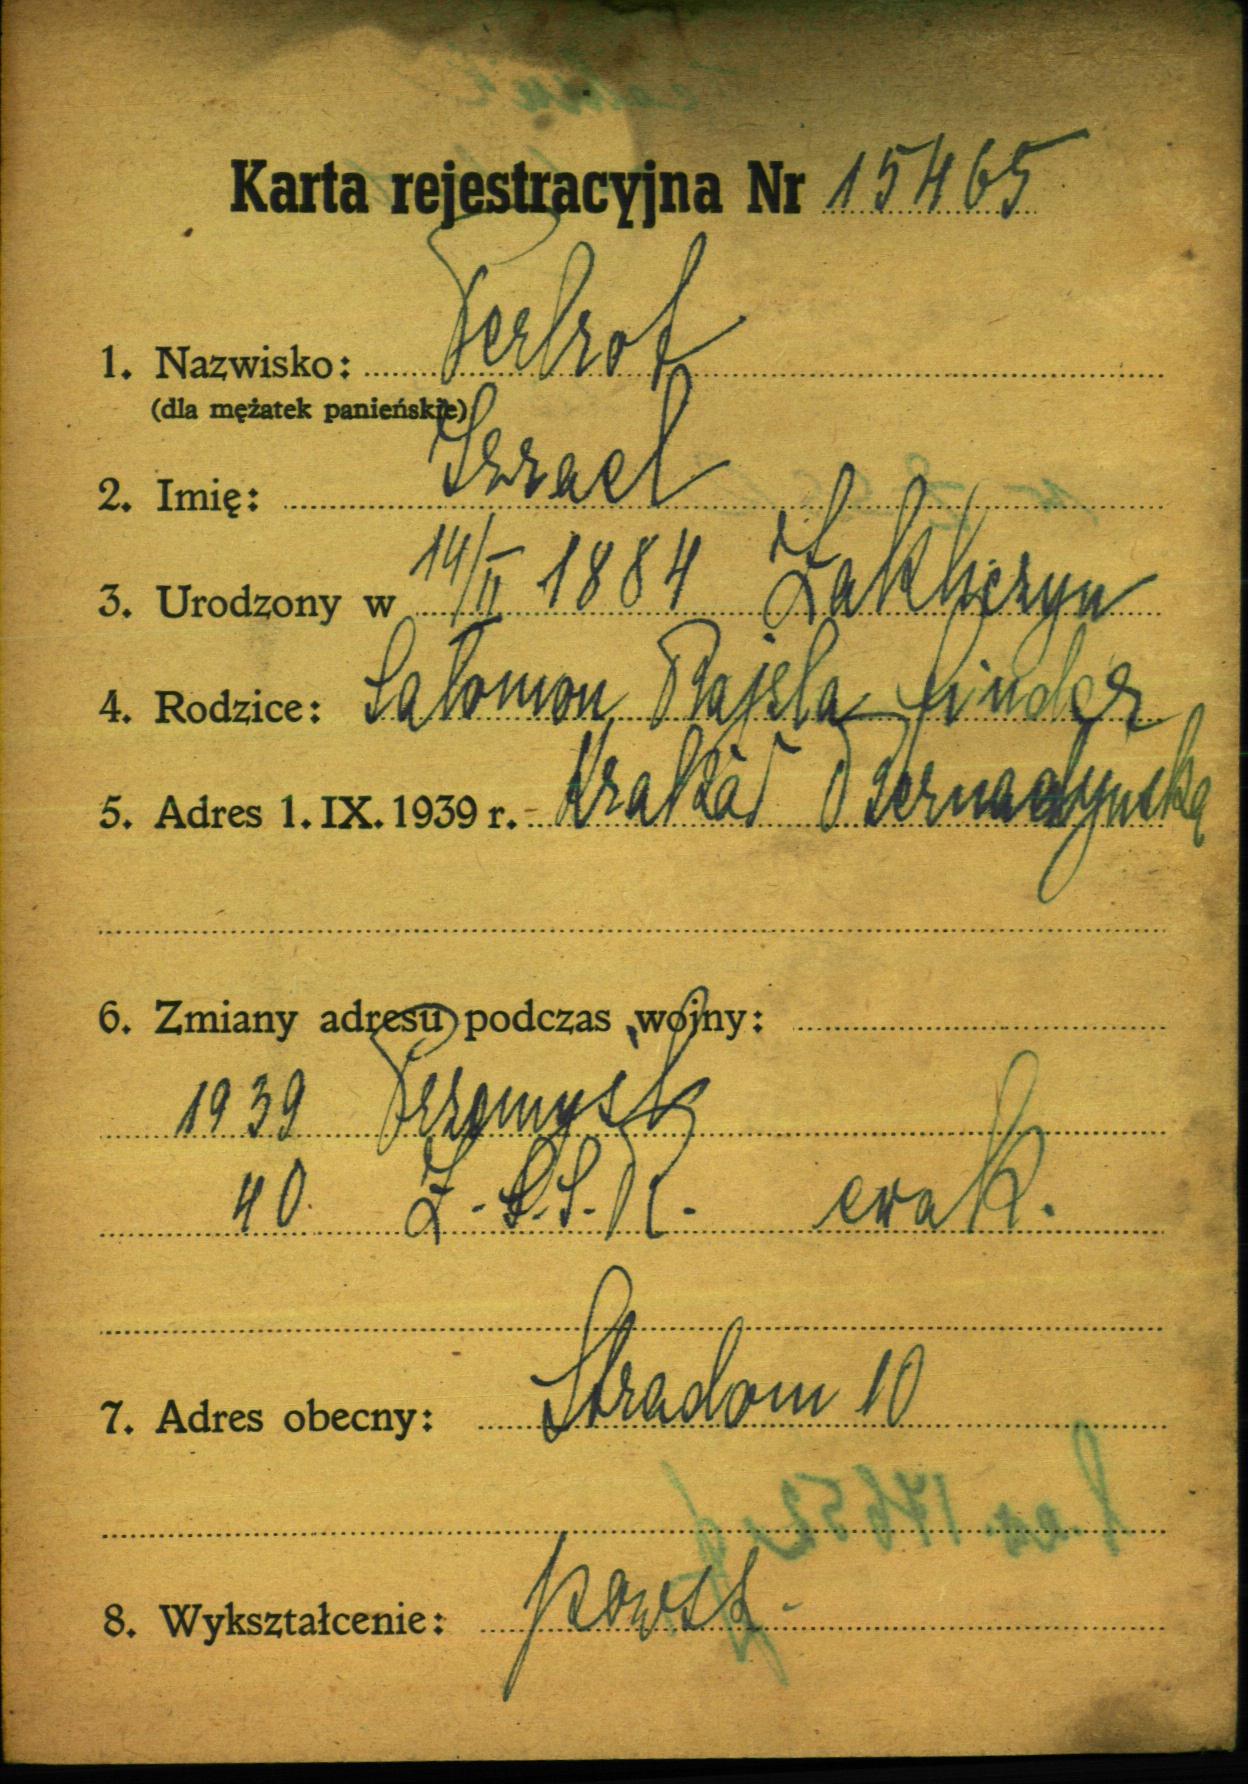 Karta rejestracyjna Nr 15465
1. Nazwisko: Perlrot
(dla mężatek panieńskie)
2. Imię: Izrael
3. Urodzony w 14/II 1884 Zakliczyn
4. Rodzice: Salomon Rajzla Binder
5. Adres 1. IX. 1939 r. - Kraków Bernadyńska
6. Zmiany adresu podczas wojny:
1939 Przemyśl
40. Z.S.S.R. ewak.
7. Adres obecny: Stradom 10
8. Wykształcenie: powsz.